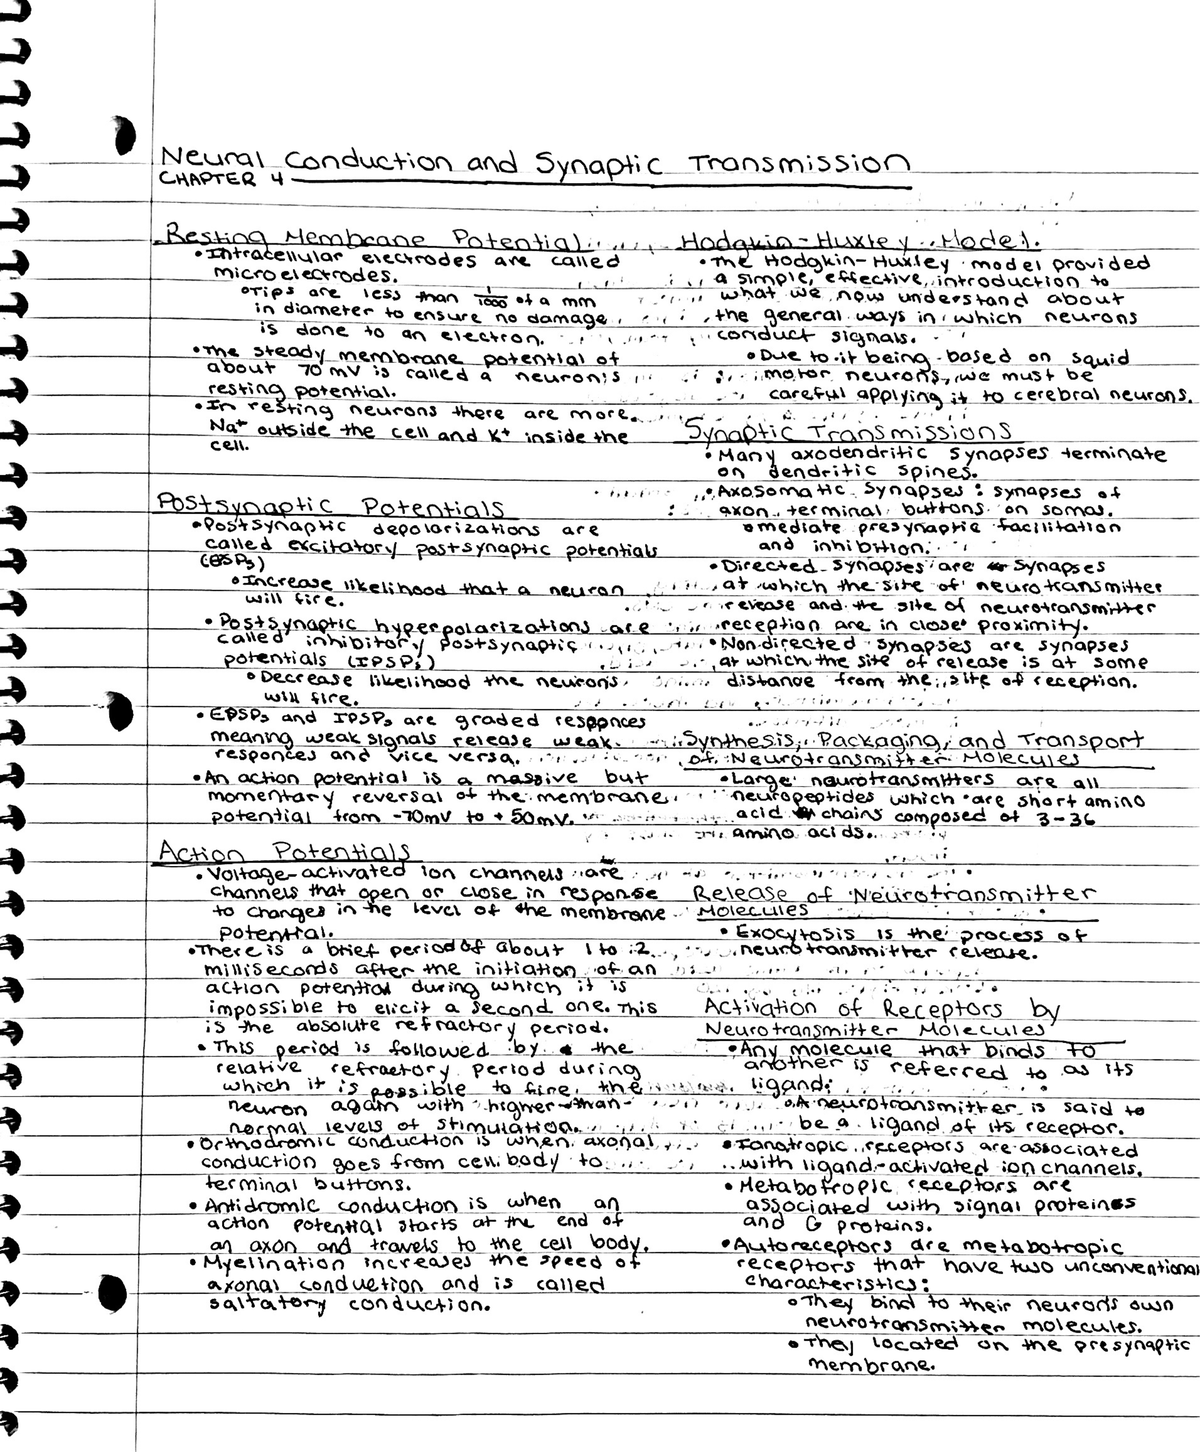 Neural Conduction and Synaptic Transmission
CHAPTER 4
Resting Membrane Potential
• Intracellular electrodes are called
microelectrodes.
◦ Tips are less than 1/1000 of a mm
in diameter to ensure no damage
is done to an electron.
• The steady membrane potential of
about 70 mV is called a neuron's
resting potential.
• In resting neurons there are more
Na+ outside the cell and K+ inside the
cell.
Postsynaptic Potentials
• Postsynaptic depolarizations are
called excitatory postsynaptic potentials
(EPSPs)
• Increase likelihood that a neuron
will fire.
• Postsynaptic hyperpolarizations are
called inhibitory postsynaptic
potentials (IPSPs)
• Decrease likelihood the neurons
will fire.
• EPSPs and IPSPs are graded responces
meaning weak signals release weak
responces and vice versa.
• An action potential is a massive but
momentary reversal of the membrane
potential from -70mV to +50mV.
Action Potentials
• Voltage-activated ion channels are
channels that open or close in response
to changes in the level of the membrane
potential.
• There is a brief period of about 1 to 2
milliseconds after the initiation of an
action potential during which it is
impossible to elicit a second one. This
is the absolute refractory period.
• This period is followed by the
relative refractory period during
which it is possible to fire the
neuron again with higher-than-
normal levels of stimulation.
• Orthodromic conduction is when axonal
conduction goes from cell body to
terminal buttons.
• Antidromic conduction is when an
action potential starts at the end of
an axon and travels to the cell body.
• Myelination increases the speed of
axonal conduction and is called
saltatory conduction.
Hodgkin-Huxley Model.
• The Hodgkin-Huxley model provided
a simple, effective, introduction to
what we now understand about
the general ways in which neurons
conduct signals.
• Due to it being based on squid
motor neurons, we must be
careful applying it to cerebral neurons.
Synaptic Transmissions
• Many axodendritic synapses terminate
on dendritic spines.
• Axosomatic Synapses: synapses of
axon terminal buttons on somas.
• mediate presynaptic facilitation
and inhibition.
• Directed Synapses are Synapses
at which the site of neurotransmitter
release and the site of neurotransmitter
reception are in close proximity.
• Non-directed synapses are synapses
at which the site of release is at some
distance from the site of reception.
Synthesis, Packaging, and Transport
of Neurotransmitter Molecules
• Large neurotransmitters are all
neuropeptides which are short amino
acid chains composed of 3-36
amino acids.
Release of Neurotransmitter
Molecules
• Exocytosis is the process of
neurotransmitter release.
Activation of Receptors by
Neurotransmitter Molecules
• Any molecule that binds to
another is referred to as its
ligand.
◦ A neurotransmitter is said to
be a ligand of its receptor.
• Ionotropic receptors are associated
with ligand-activated ion channels.
• Metabotropic receptors are
associated with signal proteins
and G proteins.
• Autoreceptors are metabotropic
receptors that have two unconventional
characteristics:
◦ They bind to their neuron's own
neurotransmitter molecules.
• They located on the presynaptic
membrane.